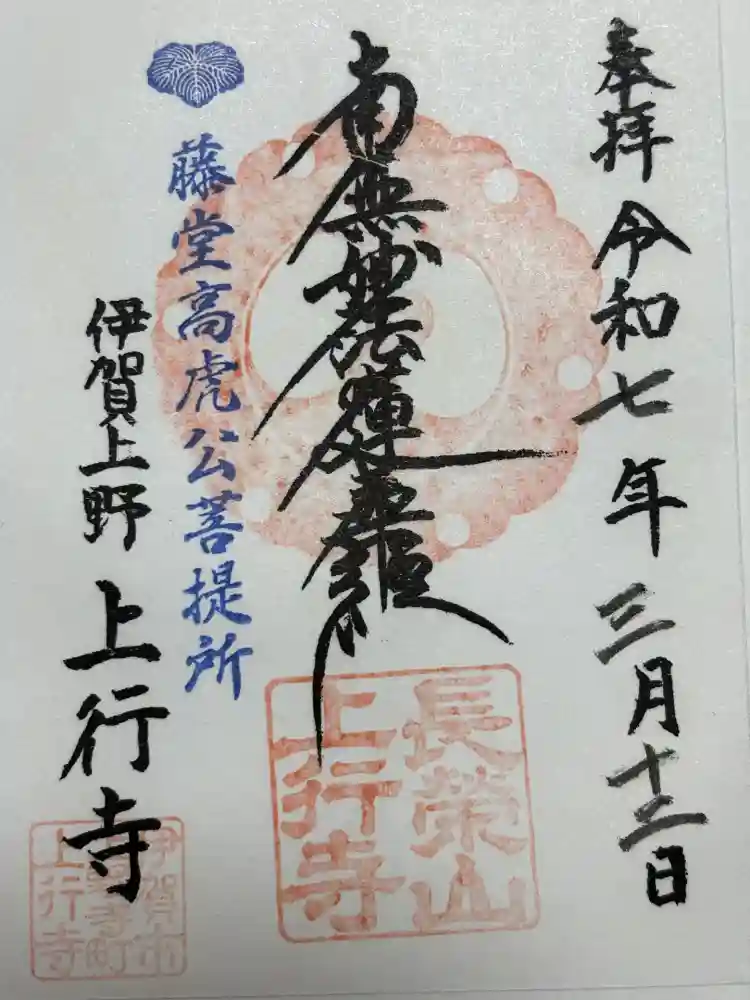 奉拝 令和七年 三月十二日
南無妙法蓮華経
長榮山
上行寺
藤堂高虎公菩提所
伊賀上野 上行寺
伊賀市
寺町
上行寺